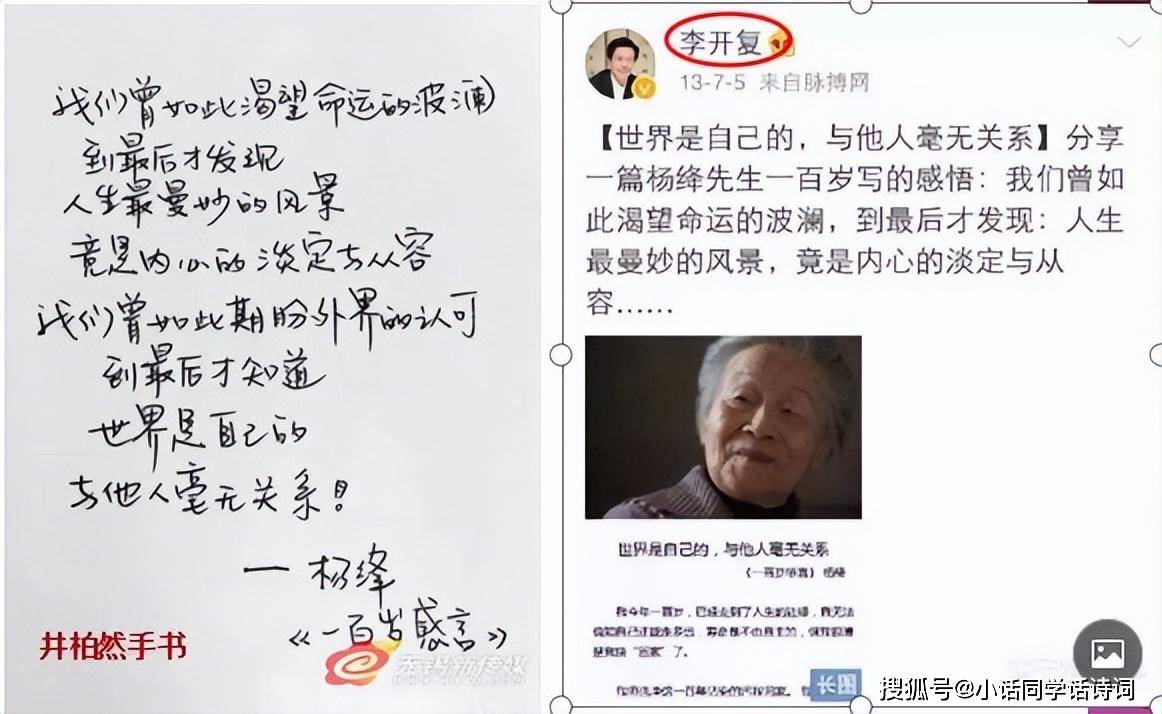 我们曾如此渴望命运的波澜
到最后才发现
人生最曼妙的风景
竟是内心的淡定与从容
我们曾如此期盼外界的认可
到最后才知道
世界是自己的
与他人毫无关系!
一 杨绛
《一百岁感言》
井柏然手书
李开复
13-7-5 来自脉搏网
【世界是自己的，与他人毫无关系】分享
一篇杨绛先生一百岁写的感悟：我们曾如
此渴望命运的波澜，到最后才发现：人生
最曼妙的风景，竟是内心的淡定与从
容……
世界是自己的，与他人毫无关系
《一百岁感言》 杨绛
我今年一百岁，已经走到了人生的边缘，我无法
确知自己还能走多远，寿命是不由自主的，但我很清
楚我快“回家”了。
长图
搜狐号@小话同学话诗词